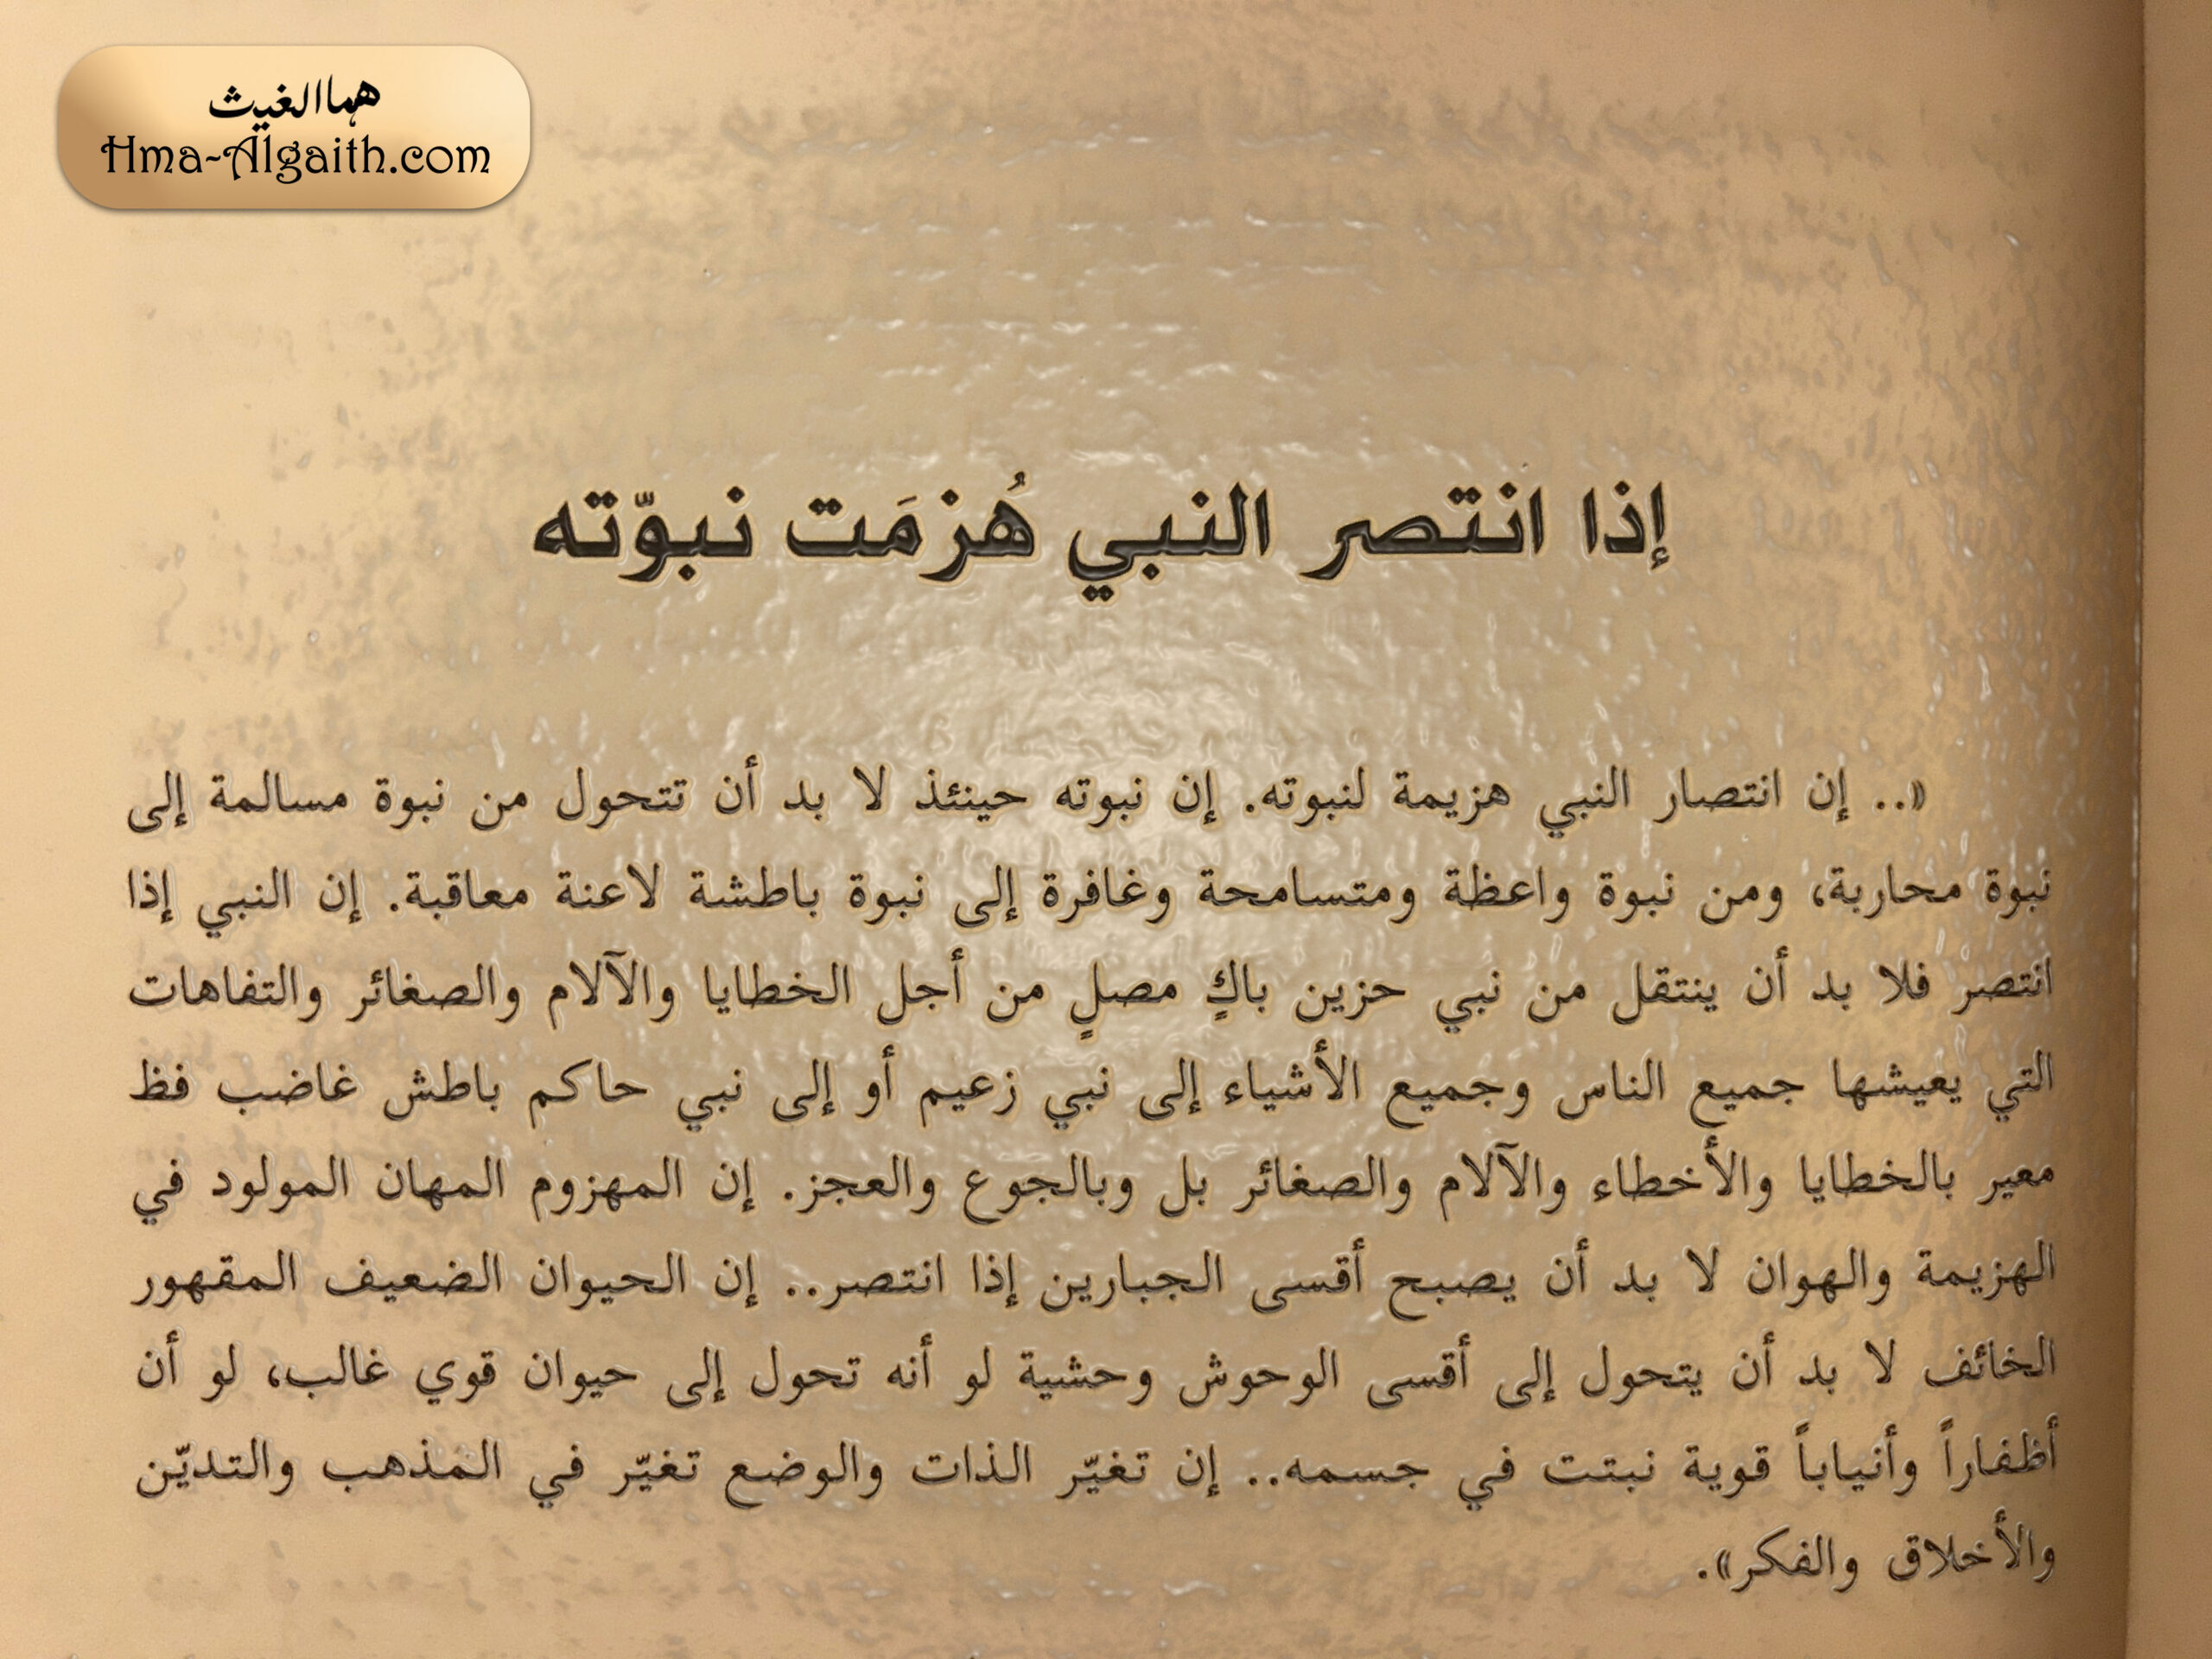 هما الغيث
Hma-Algaith.com
إذا انتصر النبي هُزمَت نبوّته
«.. إن انتصار النبي هزيمة لنبوته. إن نبوته حينئذ لا بد أن تتحول من نبوة مسالمة إلى
نبوة محاربة، ومن نبوة واعظة ومتسامحة وغافرة إلى نبوة باطشة لاعنة معاقبة. إن النبي إذا
انتصر فلا بد أن ينتقل من نبي حزين باكٍ مصلٍ من أجل الخطايا والآلام والصغائر والتفاهات
التي يعيشها جميع الناس وجميع الأشياء إلى نبي زعيم أو إلى نبي حاكم باطش غاضب فظ
معير بالخطايا والأخطاء والآلام والصغائر بل وبالجوع والعجز. إن المهزوم المهان المولود في
الهزيمة والهوان لا بد أن يصبح أقسى الجبارين إذا انتصر.. إن الحيوان الضعيف المقهور
الخائف لا بد أن يتحول إلى أقسى الوحوش وحشية لو أنه تحول إلى حيوان قوي غالب، لو أن
أظفاراً وأنياباً قوية نبتت في جسمه.. إن تغيّر الذات والوضع تغيّر في المذهب والتديّن
والأخلاق والفكر».